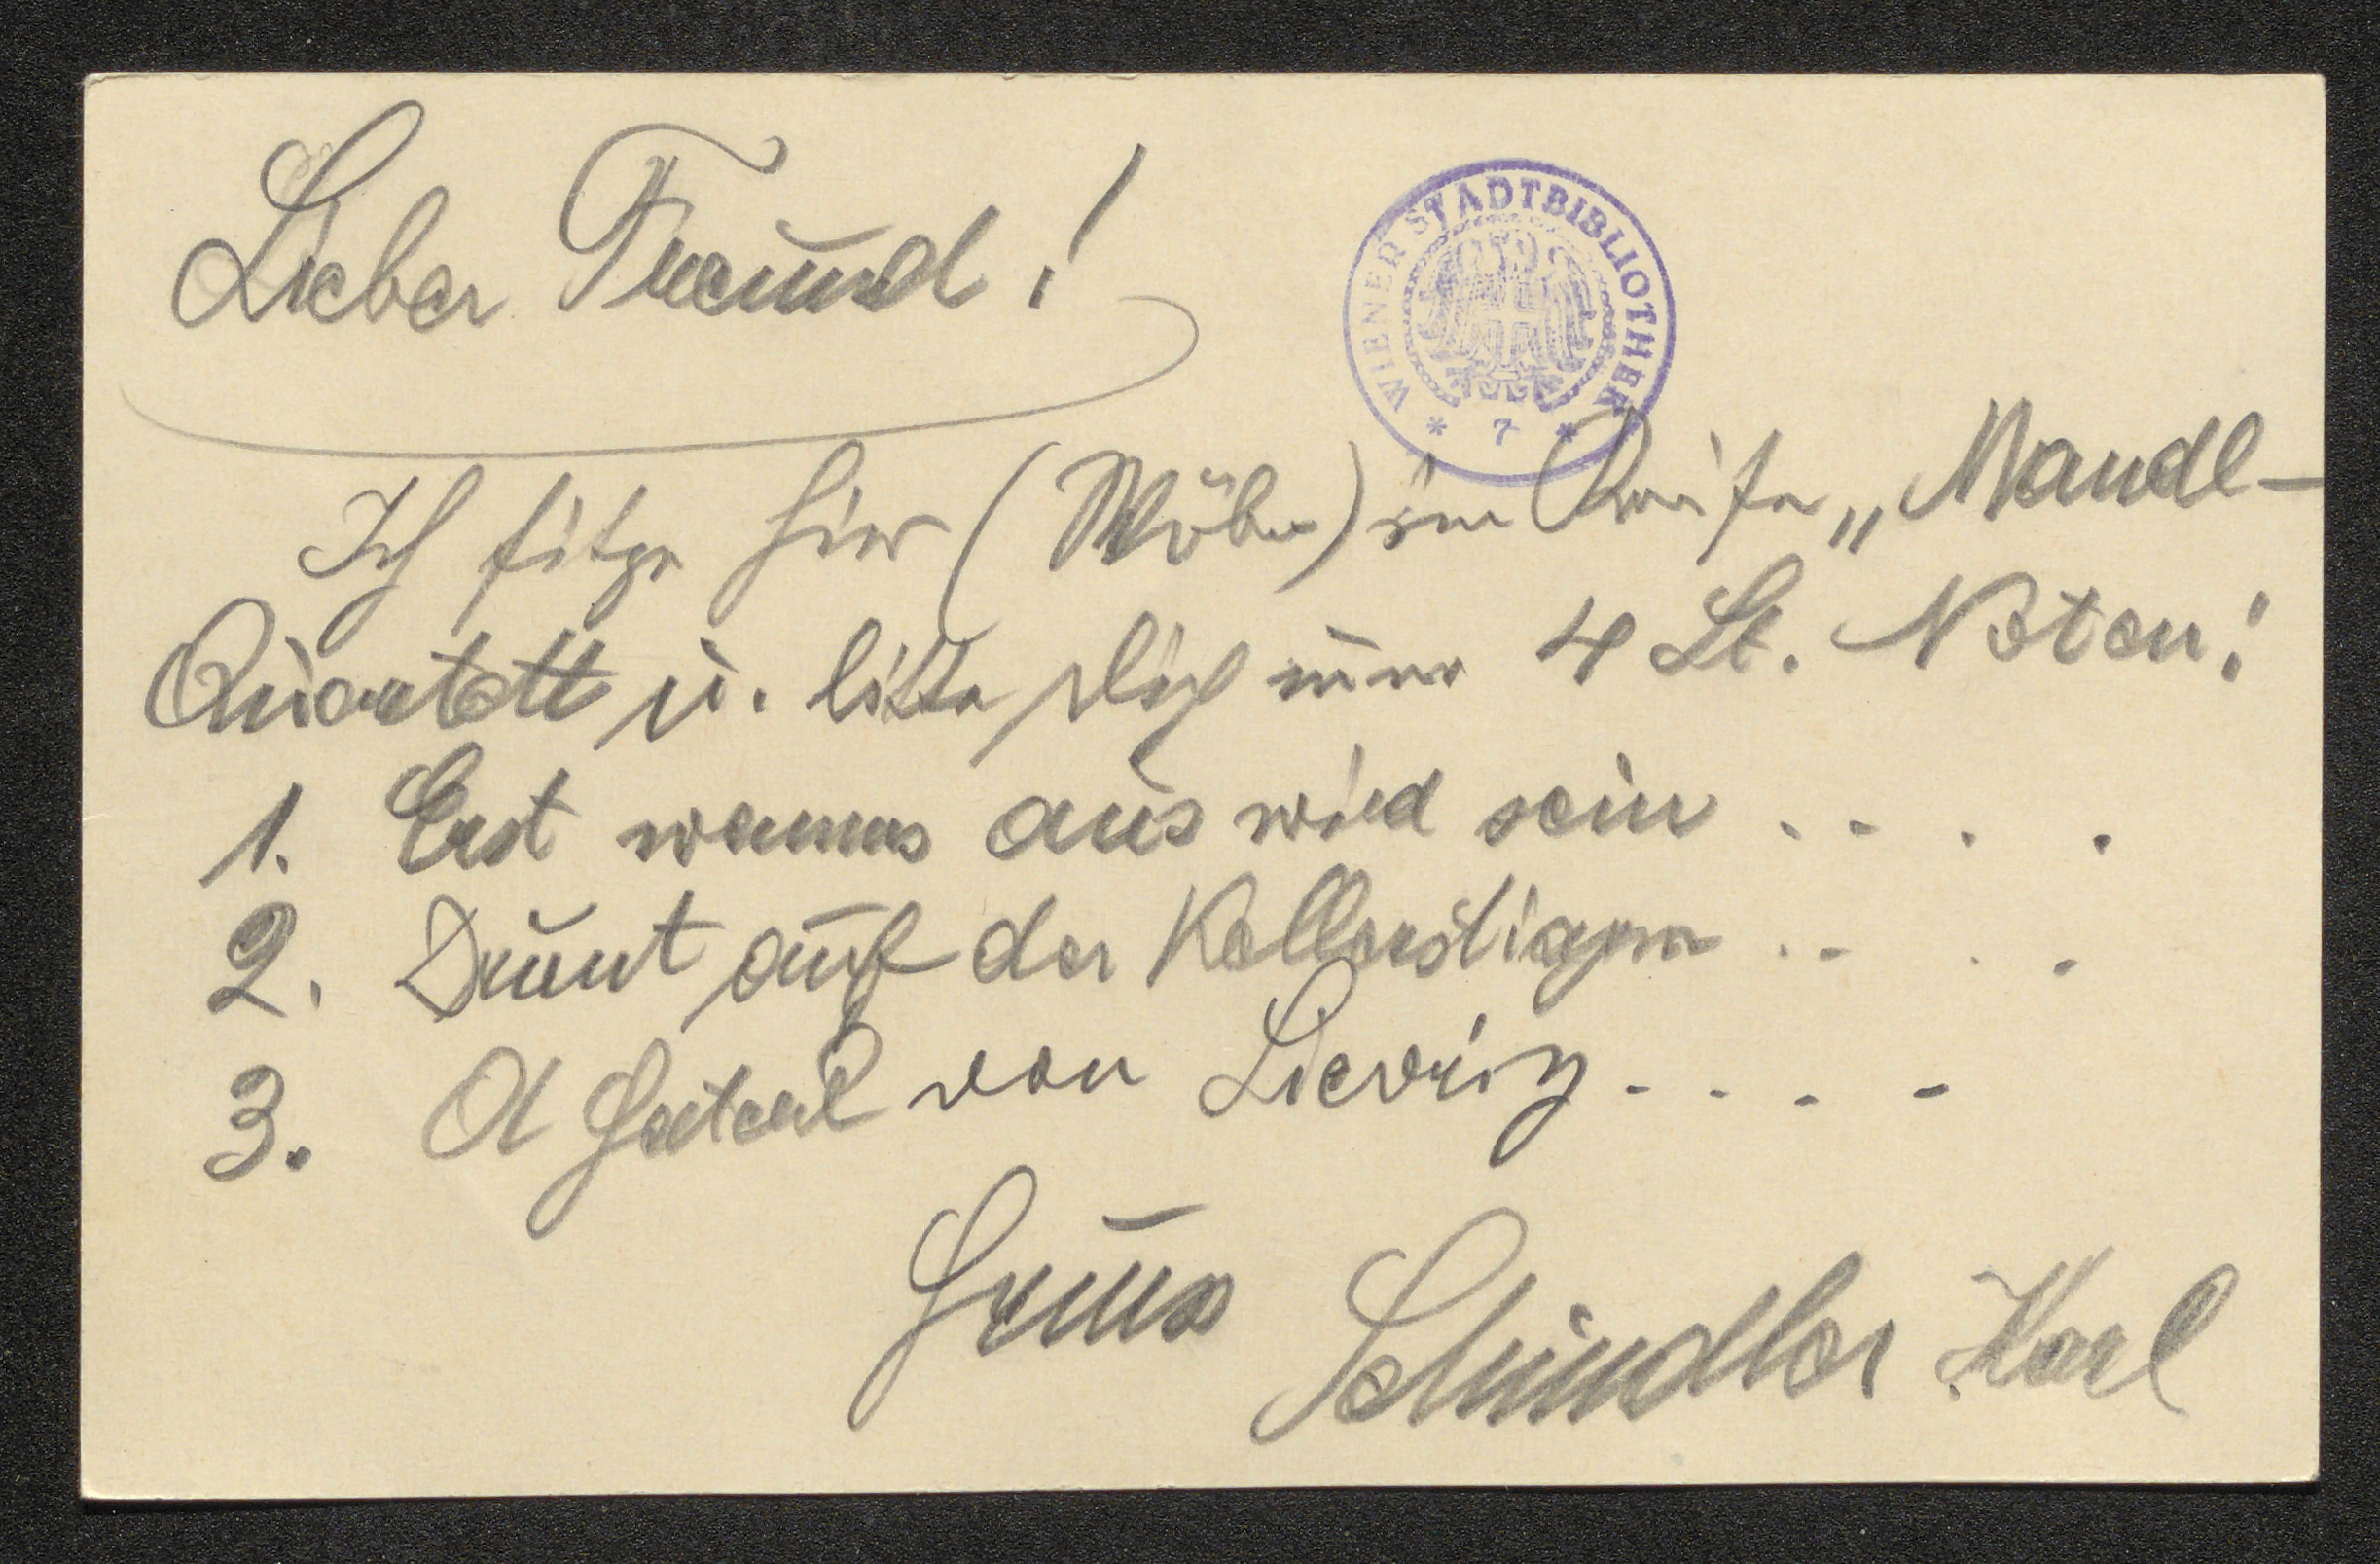 Lieber Freund!
WIENER STADTBIBLIOTHEK
* 7 *
Ich sitze hier (Möbus) im Kreise „Mandl-
Quartett u. bitte Dich um 4 St. Noten!
1. Erst wanns aus wird sein . . . .
2. Drunt auf der Kellerstiagn . . . .
3. A Gsterl von Sievring . . . .
Gruss
Schindler Karl